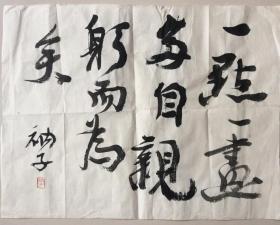 一點一畫
每自親
躬而為
矣
衲子